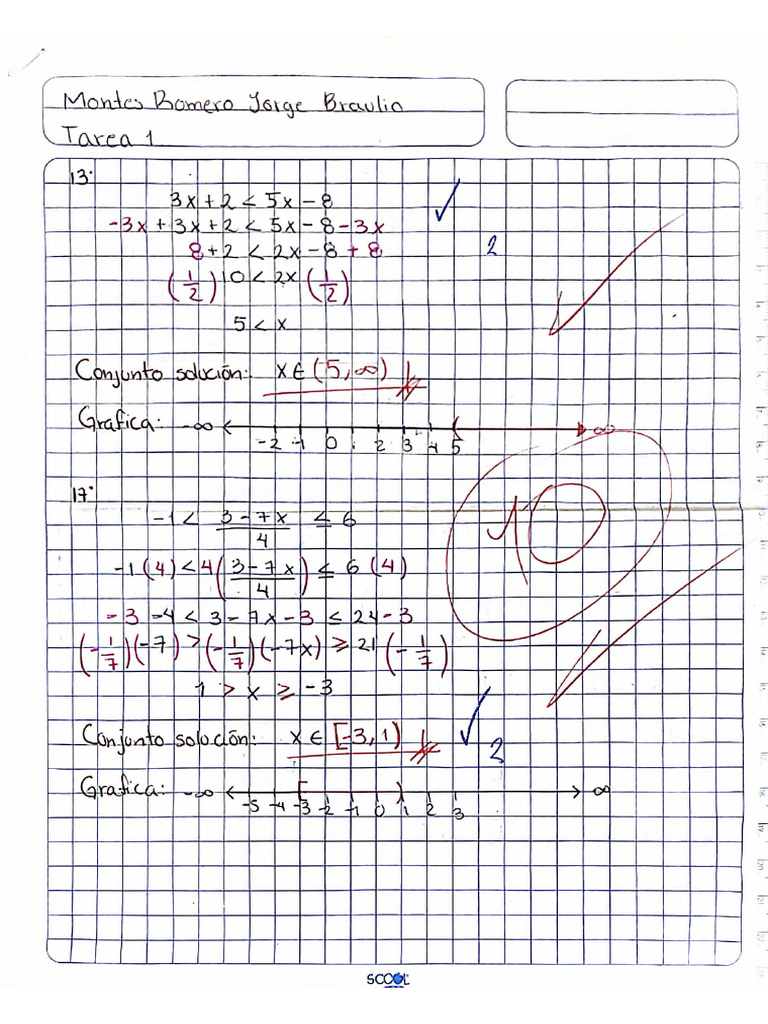 Montes Romero Jorge Braulio
Tarea 1
13.
3x + 2 < 5x - 8
-3x + 3x + 2 < 5x - 8 - 3x
8 + 2 < 2x - 8 + 8
(1/2) 10 < 2x (1/2)
5 < x
2
Conjunto solución: x ∈ (5, ∞)
Grafica: -∞ -2 -1 0 1 2 3 4 5 ∞
17.
-1 < (3 - 7x)/4 ≤ 6
10
-1 (4) < 4 ((3 - 7x)/4) ≤ 6 (4)
-3 -4 < 3 - 7x - 3 ≤ 24 - 3
(-1/7)(-7) > (-1/7)(-7x) ≥ 21 (-1/7)
1 > x ≥ -3
Conjunto solución: x ∈ [-3, 1)
2
Grafica: -∞ -5 -4 -3 -2 -1 0 1 2 3 ∞
SCOOL